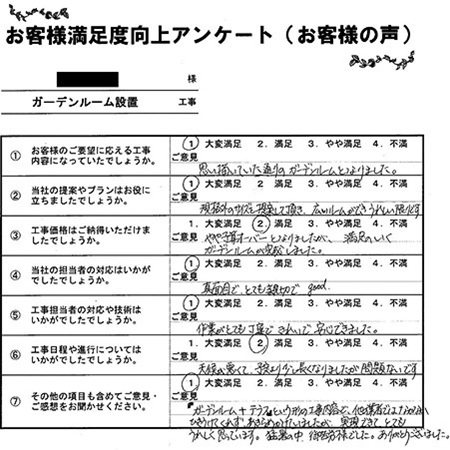 お客様満足度向上アンケート（お客様の声）
様
ガーデンルーム設置 工事
① お客様のご要望に応える工事内容になっていたでしょうか。
1. 大変満足 2. 満足 3. やや満足 4. 不満
ご意見
思い描いていた通りのガーデンルームとなりました。
② 当社の提案やプランはお役に立ちましたでしょうか。
1. 大変満足 2. 満足 3. やや満足 4. 不満
ご意見
して頂き、広いルームができうれしい限りです
③ 工事価格はご納得いただけましたでしょうか。
1. 大変満足 2. 満足 3. やや満足 4. 不満
ご意見
やや予算オーバーとなりましたが、満足のいく
ガーデンルームが完成しました。
④ 当社の担当者の対応はいかがでしたでしょうか。
1. 大変満足 2. 満足 3. やや満足 4. 不満
ご意見
真面目で、とても親切で good.
⑤ 工事担当者の対応や技術はいかがでしたでしょうか。
1. 大変満足 2. 満足 3. やや満足 4. 不満
ご意見
作業がとても丁寧できれいで、安心できました。
⑥ 工事日程や進行についてはいかがでしたでしょうか。
1. 大変満足 2. 満足 3. やや満足 4. 不満
ご意見
天候が悪くて、予定より少し長くなりましたが問題ないです
⑦ その他の項目も含めてご意見・ご感想をお聞かせください。
1. 大変満足 2. 満足 3. やや満足 4. 不満
ご意見
ガーデンルーム＋テラスという形の工事内容で、他業者ではなかなか
ひきうけてくれず、あきらめかけていましたが、実現できて、とても
うれしく思っています。猛暑の中、御苦労様でした。ありがとうございました。